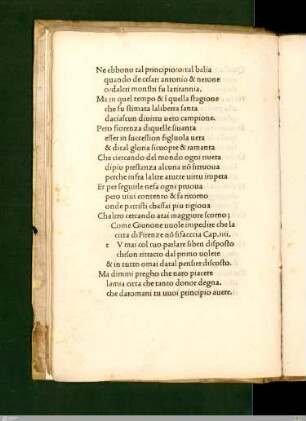 Ne ebbono tal principio o tal balia
quando de cesari antonio & nerone
o daltri monstri fu la titannia.
Ma in quel tempo & i quella stagione
che fu stimata la liberta santa
da ciascun di uirtu uero campione.
Pero fiorenza di quelle si uanta
esser in succession figluola uera
& di tal gloria si cuopre & ramanta
Che ciercando del mondo ogni riuera
di piu prestanza alcuna nō si truoua
perche infra laltre a tutte uirtu impera
Et per seguirle ne fa ogni pruoua
pero uiui contento & fa ritorno
onde partisti chassai piu ti gioua
Chaltro cercando assai maggiore scorno;
Come Giunone uuole impedire che la
citta di Firenze nō si faccia Cap. iiii.
e V mai col tuo parlare si ben disposto
chi son ritratto dal primo uolere
& in tutto omai da tal pensier discosto.
Ma dimmi pregho che naro piacere
la mia citta che tanto donor degna.
che da romani tu uuoi principio auere.